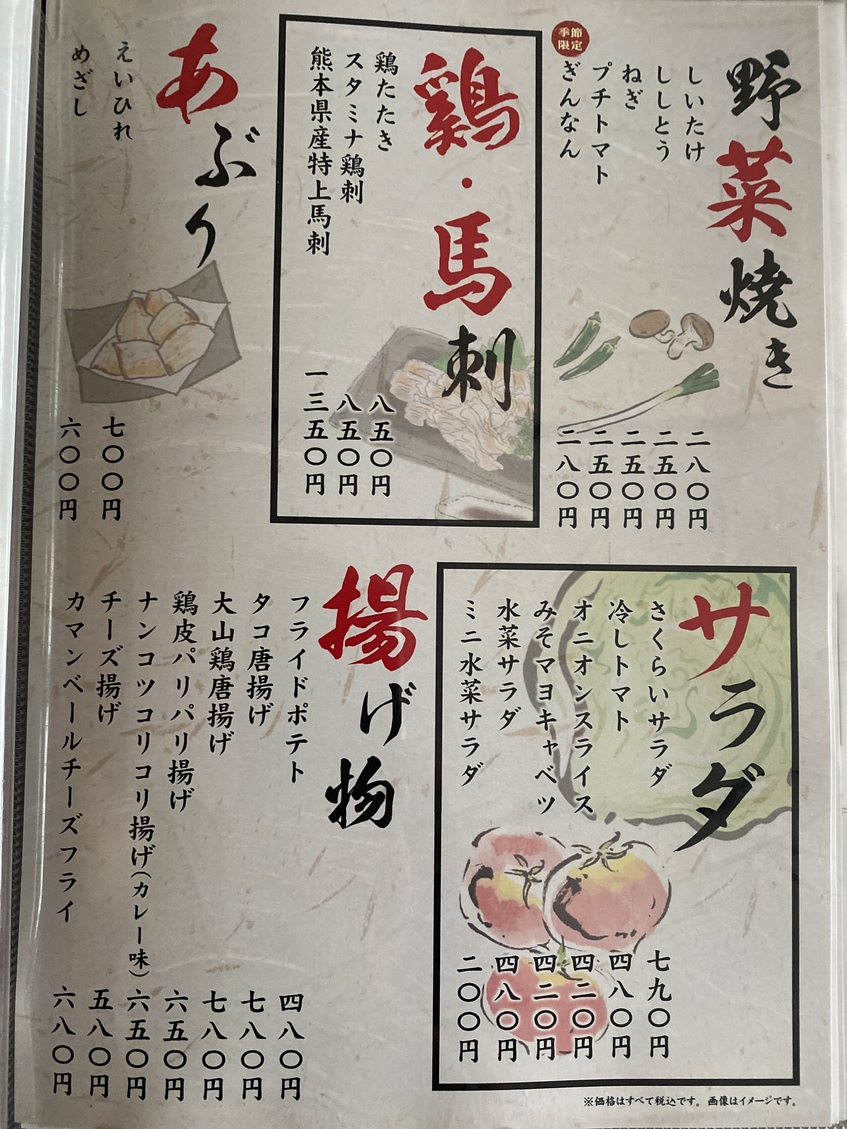 野菜焼き
しいたけ 二八〇円
ししとう 二五〇円
ねぎ 二五〇円
プチトマト 二五〇円
季節限定
ぎんなん 二八〇円
鶏・馬刺
鶏たたき 八五〇円
スタミナ鶏刺 八五〇円
熊本県産特上馬刺 一三五〇円
あぶり
えいひれ 七〇〇円
めざし 六〇〇円
サラダ
さくらいサラダ 七九〇円
冷しトマト 四八〇円
オニオンスライス 四二〇円
みそマヨキャベツ 四二〇円
水菜サラダ 四八〇円
ミニ水菜サラダ 二〇〇円
揚げ物
フライドポテト 四八〇円
タコ唐揚げ 七八〇円
大山鶏唐揚げ 七八〇円
鶏皮パリパリ揚げ 六五〇円
ナンコツコリコリ揚げ(カレー味) 六五〇円
チーズ揚げ 五八〇円
カマンベールチーズフライ 六八〇円
※価格はすべて税込です。画像はイメージです。